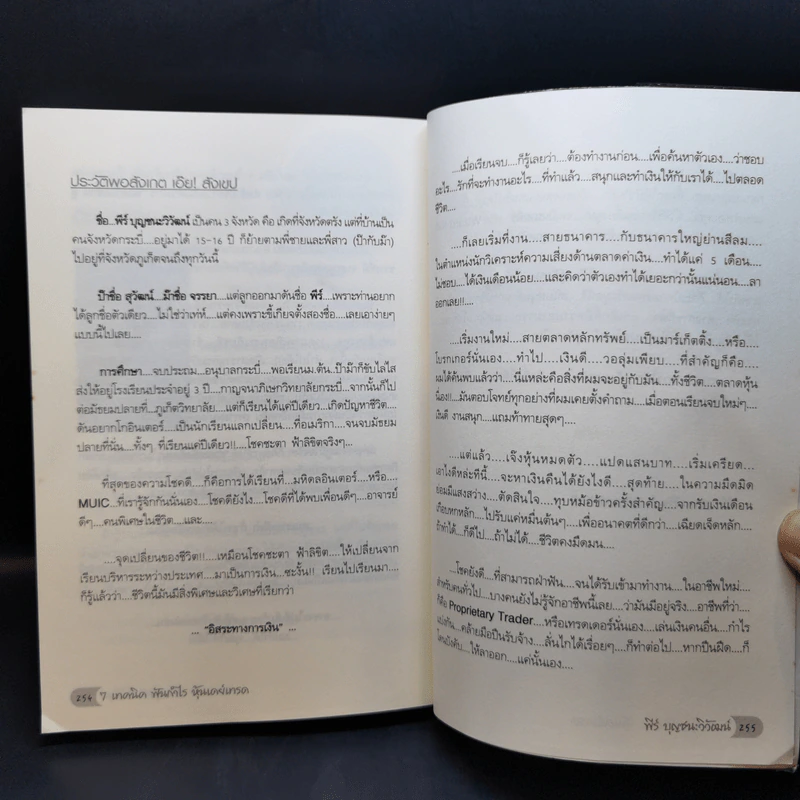 ประวัติพอสังเกต เอ๊ย! สังเขป
ชื่อ...พีร์ บุญชนะวิวัฒน์ เป็นคน 3 จังหวัด คือ เกิดที่จังหวัดตรัง แต่ที่บ้านเป็น
คนจังหวัดกระบี่....อยู่มาได้ 15-16 ปี ก็ย้ายตามพี่ชายและพี่สาว (ป๊ากับม๊า)
ไปอยู่ที่จังหวัดภูเก็ตจนถึงทุกวันนี้
ป๊าชื่อ สุวัฒน์...ม๊าชื่อ จรรยา....แต่ลูกออกมาดันชื่อ พีร์....เพราะท่านอยาก
ได้ลูกชื่อตัวเดียว....ไม่ใช่ว่าเท่ห์....แต่คงเพราะขี้เกียจตั้งสองชื่อ....เลยเอาง่ายๆ
แบบนี้ไปเลย....
การศึกษา....จบประถม...อนุบาลกระบี่....พอเรียนม.ต้น..ป๊าม๊าก็ขับไล่ไส
ส่งให้อยู่โรงเรียนประจำอยู่ 3 ปี....กาญจนาภิเษกวิทยาลัยกระบี่....จากนั้นก็ไป
ต่อมัธยมปลายที่...ภูเก็ตวิทยาลัย....แต่ก็เรียนได้แค่ปีเดียว....เกิดปัญหาชีวิต....
ดันอยากโกอินเตอร์....เป็นนักเรียนแลกเปลี่ยน....ที่อเมริกา....จนจบมัธยม
ปลายที่นั่น....ทั้งๆ ที่เรียนแค่ปีเดียว!!....โชคชะตา ฟ้าลิขิตจริงๆ....
ที่สุดของความโชคดี....ก็คือการได้เรียนที่....มหิดลอินเตอร์....หรือ....
MUIC...ที่เรารู้จักกันนั่นเอง....โชคดียังไง....โชคดีที่ได้พบเพื่อนดีๆ....อาจารย์
ดีๆ....คนพิเศษในชีวิต....และ....
....จุดเปลี่ยนของชีวิต!!....เหมือนโชคชะตา ฟ้าลิขิต....ให้เปลี่ยนจาก
เรียนบริหารระหว่างประเทศ....มาเป็นการเงิน....ซะงั้น!! เรียนไปเรียนมา....
ก็รู้แล้วว่า....ชีวิตนี้มันมีสิ่งพิเศษและวิเศษที่เรียกว่า
... "อิสระทางการเงิน" ...
254 7 เทคนิค ฟันกำไร หุ้นเดย์เทรด
....เมื่อเรียนจบ....ก็รู้เลยว่า....ต้องทำงานก่อน....เพื่อค้นหาตัวเอง....ว่าชอบ
อะไร....รักที่จะทำงานอะไร....ที่ทำแล้ว....สนุกและทำเงินให้กับเราได้....ไปตลอด
ชีวิต....
....ก็เลยเริ่มที่งาน....สายธนาคาร....กับธนาคารใหญ่ย่านสีลม....
ในตำแหน่งนักวิเคราะห์ความเสี่ยงด้านตลาดค่าเงิน....ทำได้แค่ 5 เดือน....
ไม่ชอบ....ได้เงินเดือนน้อย....และคิดว่าตัวเองทำได้เยอะกว่านั้นแน่นอน....ลา
ออกเลย!!....
....เริ่มงานใหม่....สายตลาดหลักทรัพย์....เป็นมาร์เก็ตติ้ง....หรือ....
โบรกเกอร์นั่นเอง....ทำไป....เงินดี....วอลุ่มเพียบ....ที่สำคัญก็คือ....
ผมได้ค้นพบแล้วว่า....นี่แหล่ะคือสิ่งที่ผมจะอยู่กับมัน....ทั้งชีวิต....ตลาดหุ้น
นี่เอง!!....มันตอบโจทย์ทุกอย่างที่ผมเคยตั้งคำถาม....เมื่อตอนเรียนจบใหม่ๆ....
เงินดี งานสนุก....แถมท้าทายสุดๆ....
....แต่แล้ว....เจ๊งหุ้นหมดตัว....แปดแสนบาท....เริ่มเครียด....
เอาไงดีหล่ะทีนี้....จะหาเงินคืนได้ยังไงดี....สุดท้าย....ในความมืดมิด
ย่อมมีแสงสว่าง....ตัดสินใจ....ทุบหม้อข้าวครั้งสำคัญ....จากรับเงินเดือน
เกือบหกหลัก....ไปรับแค่หมื่นต้นๆ....เพื่ออนาคตที่ดีกว่า....เฉียดเจ็ดหลัก....
ถ้าทำได้....ก็ดีไป....ถ้าไม่ได้....ชีวิตคงมืดมน....
....โชคยังดี....ที่สามารถฝ่าฟัน....จนได้รับเข้ามาทำงาน....ในอาชีพใหม่....
สำหรับคนทั่วไป....บางคนยังไม่รู้จักอาชีพนี้เลย....ว่ามันมีอยู่จริง....อาชีพที่ว่า....
ก็คือ Proprietary Trader....หรือเทรดเดอร์นั่นเอง....เล่นเงินคนอื่น....กำไร
แบ่งกัน....คล้ายมือปืนรับจ้าง....ลั่นไกได้เรื่อยๆ....ก็ทำต่อไป....หากปืนฝืด....ก็
โดนบังคับ....ให้ลาออก....แค่นั้นเอง....
พีร์ บุญชนะวิวัฒน์ 255